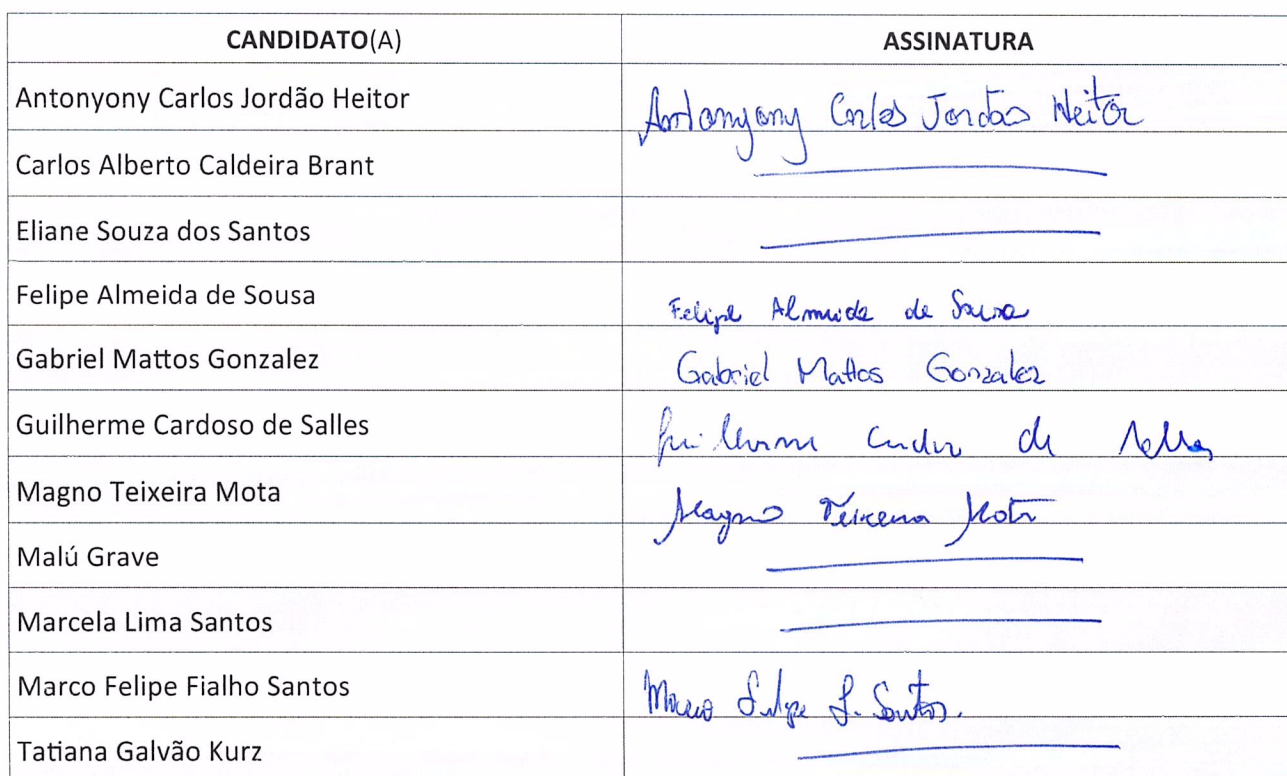 CANDIDATO(A) ASSINATURA
Antonyony Carlos Jordão Heitor Antonyony Carlos Jordão Heitor
Carlos Alberto Caldeira Brant
Eliane Souza dos Santos
Felipe Almeida de Sousa Felipe Almeida de Sousa
Gabriel Mattos Gonzalez Gabriel Mattos Gonzalez
Guilherme Cardoso de Salles Guilherme Cardoso de Salles
Magno Teixeira Mota Magno Teixeira Mota
Malú Grave
Marcela Lima Santos
Marco Felipe Fialho Santos Marco Felipe F. Santos.
Tatiana Galvão Kurz